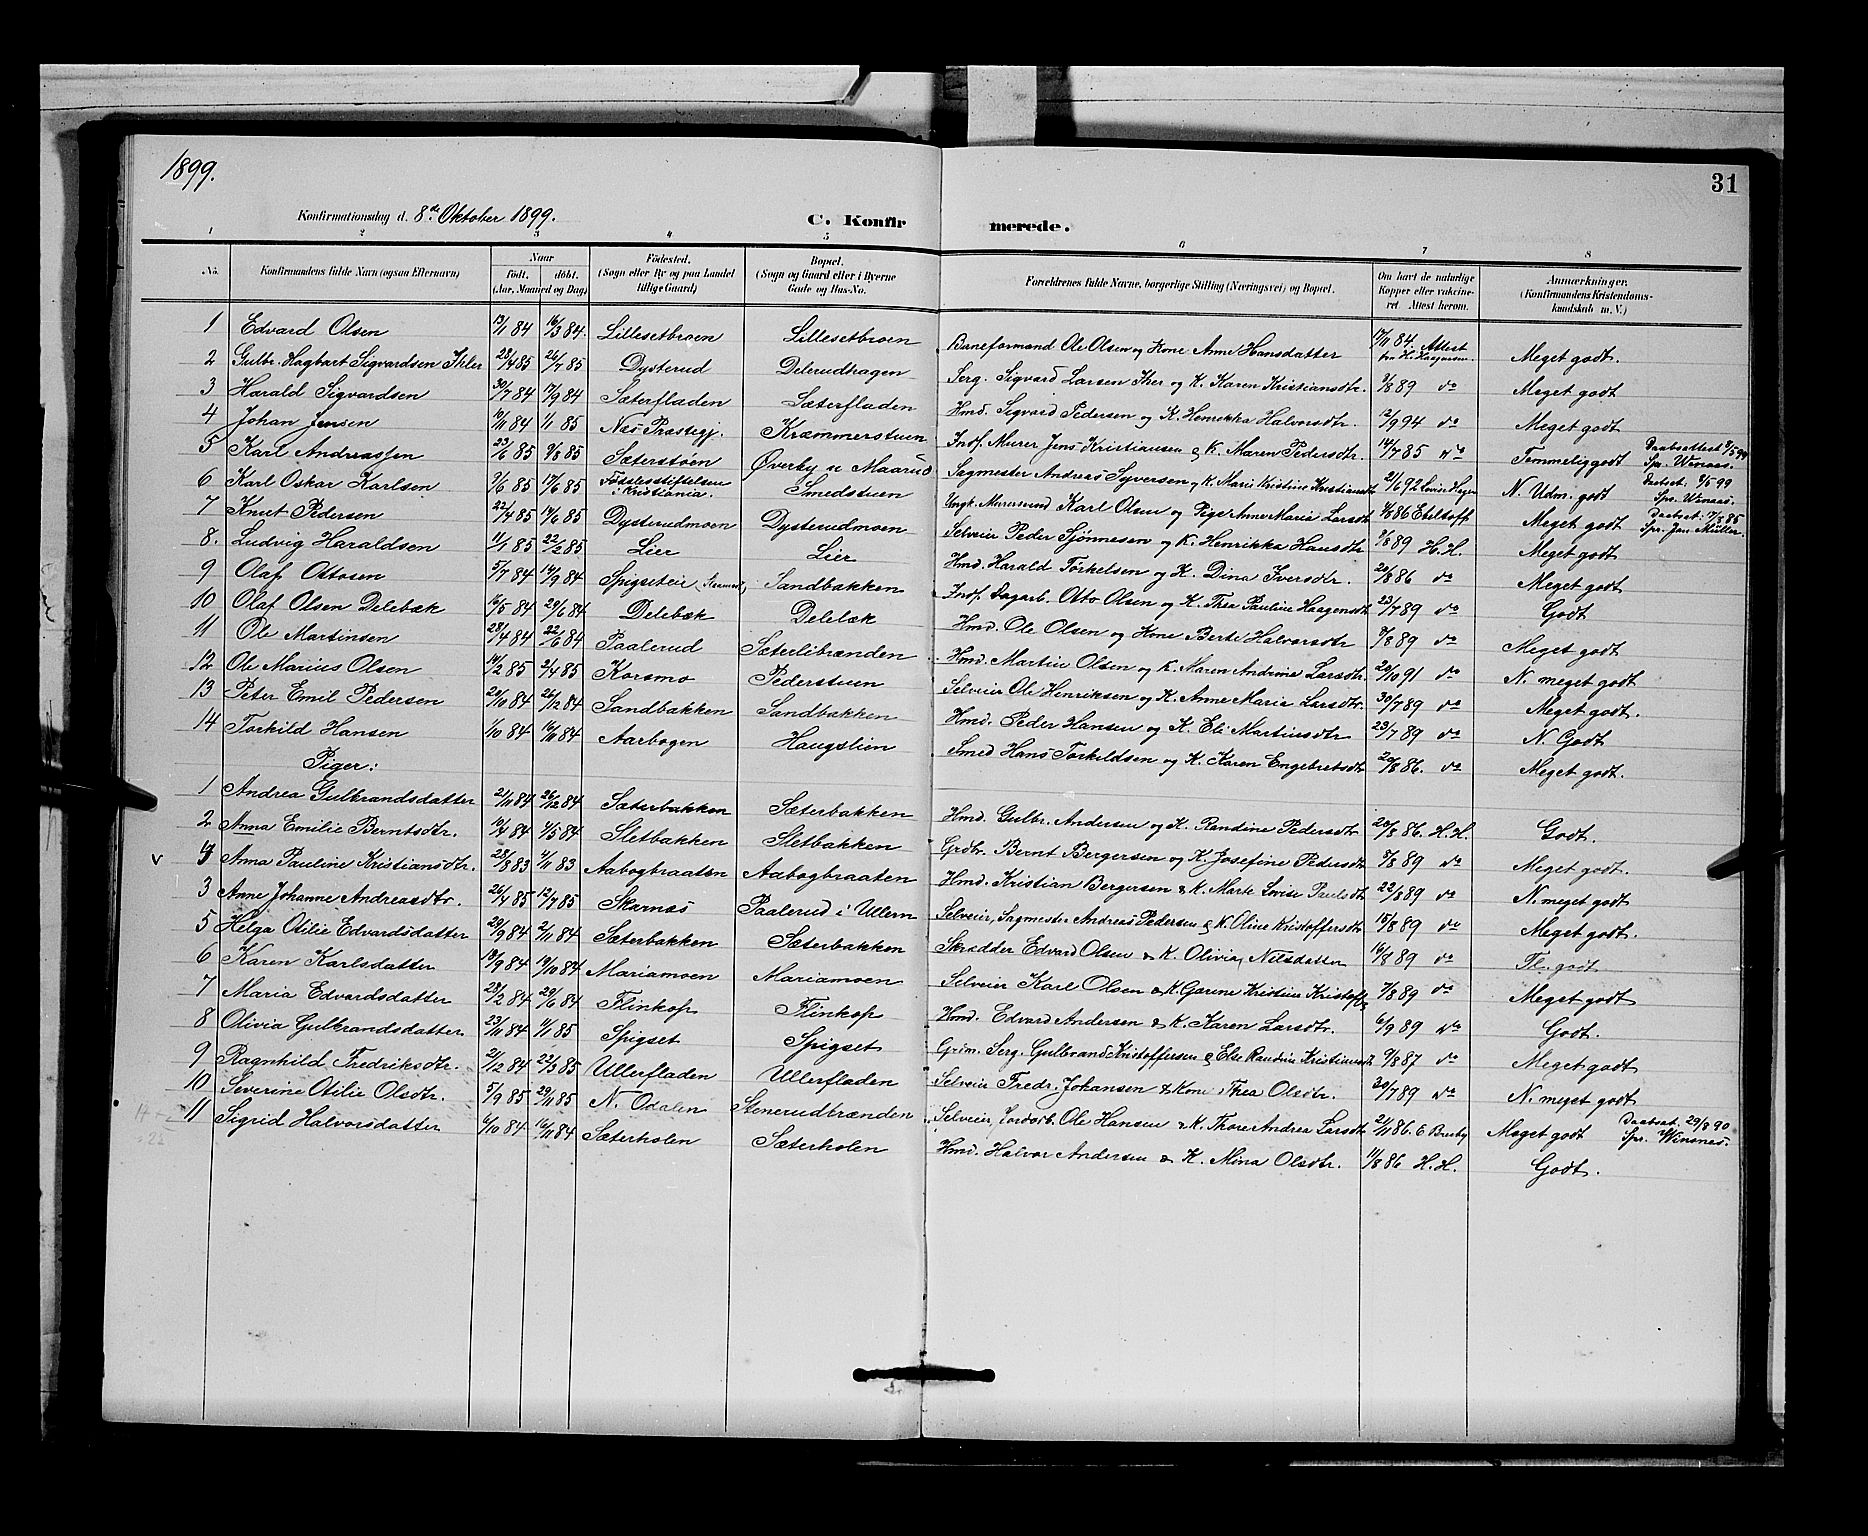 1899.
31
Konfirmationsdag d. 8de Oktober 1899.
C. Konfirmerede.
1 2 3 4 5 6 7 8
No. Konfirmandens fulde Navn (ogsaa Efternavn) Naar født. døbt. (Aar, Maaned og Dag) Fødested. (Sogn eller By og paa Landet tillige Gaard) Bopæl. (Sogn og Gaard eller i Byerne Gade og Hus-No. Forældrenes fulde Navne, borgerlige Stilling (Næringsvei) og Bopæl. Om havt de naturlige Kopper eller vaccineret Attest herom. Anmærkninger. (Konfirmandens Kristendomskundskab m. V.)
1 Edvard Olsen 13/1 84 16/3 84 Lillesetbroen Lillesetbroen Baneformand Ole Olsen og Kone Anne Hansdatter 17/11 84 Attest
2 Gulbr. Hagbart Sigvardsen Ihler 28/4 85 26/7 85 Dysterud Delerudhagen Serg. Sigvard Larsen Iher og K. Karen Kristiansdtr. 9/8 89 do Meget godt.
3 Harald Sigvardsen 30/7 84 17/9 84 Sæterfladen Sæterfladen Hmd. Sigvard Pedersen og K. Henrikka Halvorsdtr. 12/9 94 do Meget godt
4 Johan Jensen 10/11 84 1/1 85 Næs Præstegj. Kræmmerstuen Indf. Murer Jens Kristiansen & K. Maren Pedersdtr. 14/7 85 do Meget godt
5 Karl Andreassen 23/6 85 9/8 85 Sæterstøen Øverby u Maarud Sagmester Andreas Syversen og K. Maris Kristine Kristiansdtr 21/6 92 Temmelig godt
6 Karl Oskar Karlsen 9/6 85 17/6 85 Fødselsstiftelsen i Kristiania. Smedstuen Ungk. Murersvend Karl Olsen og Pige Anne Maria Larsdt N. Udm. godt
7 Knut Pedersen 22/4 85 14/6 85 Dysterudmoen Dysterudmoen Selveier Peder Sjønnesen og K. Henrikka Hansdtr Meget godt
8. Ludvig Haraldsen 11/1 85 22/2 85 Lier Lier Hmd. Harald Torkelsen og K. Dina Iversdtr. 20/8 86 do Meget godt
9 Olaf Ottosen 5/7 84 14/9 84 Spigseteie Sandbakken Indf. Dagarb. Otto Olsen og K. Thea Pauline Haagensdt 23/7 89 do Meget godt
10 Olaf Olsen Delebæk 16/5 84 29/6 84 Delebæk Delebæk Hmd. Ole Olsen og Kone Berte Halvorsdtr 9/8 89 do Godt
11 Ole Martinsen 28/4 84 22/6 84 Paalerud Sæterlibrænden Hmd. Martin Olsen og K. Maren Andrine Larsdtr 20/10 91 do Meget godt
12 Ole Marius Olsen 14/2 85 2/4 85 Korsmo Pederstuen Selveier Ole Henriksen og K. Anne Maria Larsdtr. 30/7 89 do N. meget godt
13 Peter Emil Pedersen 20/10 84 26/12 84 Sandbakken Sandbakken Hmd. Peder Hansen og K. Eli Martinsdtr 23/7 89 do Meget godt.
14 Torkild Hansen 1/10 84 16/11 84 Aarbogen Haugslien Smed Hans Torkildsen og K. Karen Engebretsdtr 20/8 86. do N. Godt
Meget godt.
Piger:
1 Andrea Gulbrandsdatter 21/11 84 26/12 84 Sæterbakken Sæterbakken Hmd. Gulbr. Andersen og K. Randine Pedersdtr 20/8 86. H. H. Godt.
2 Anna Emilie Berntsdtr. 10/4 84 4/5 84 Sletbakken Sletbakken Grdbr. Bernt Bergersen og K. Josefine Pedersdt 9/8 89 do Meget godt.
v 4 Anna Pauline Kristiansdtr. 28/8 83 4/11 83 Aabogbraaten Aabogbraaten Hmd. Kristian Bergersen & K. Marte Lovise Paulsdt 22/8 89 do N. meget godt
3 Anne Johanne Andreasdtr. 26/4 85 12/7 85 Skarnæs Paalerud i Ullern Selveier, Sagmester Andreas Pedersen & K. Oline Kristoffersdt 15/8 89 do Meget godt.
5 Helga Otilie Edvardsdatter 20/9 84 2/11 84 Sæterbakken Sæterbakken Skrædder Edvard Olsen & K. Olivia Nilsdatter 16/8 89 do Tl. godt
6 Karen Karlsdatter 13/9 84 19/10 84 Mariamoen Mariamoen Selveier Karl Olsen & K. Gurine Kristine Kristoff. 7/8 89 do Meget godt
7 Maria Edvardsdatter 23/2 84 29/6 84 Flinkop Flinkop Hmd. Edvard Andersen & K. Karen Larsdtr. 6/9 89 do Godt.
8 Olivia Gulbrandsdatter 23/11 84 1/1 85 Spigset Spigset Grdm. Serg. Gulbrand Kristoffersen & Else Randine Kristiansdt 9/8 87 do Meget godt
9 Ragnhild Fredriksdtr. 21/12 84 22/3 85 Ullerfladen Ullerfladen Selveier Fredr. Johansen & Kone Thea Olsdtr. 30/7 89 do N. meget godt
10 Severine Otilie Olsdtr. 5/9 85 29/11 85 N. Odalen Stenerudbrænden Selveier, Jordarb. Ole Hansen & K. Thore Andrea Larsdt 21/11 86. Meget godt Daabsat. 29/8 90 Spr. Winsnes
11 Sigrid Halvorsdatter 6/10 84 16/11 84 Sæterholen Sæterholen Hmd. Halvor Andersen & K. Mina Olsdtr. 11/8 86 H. H. Godt.